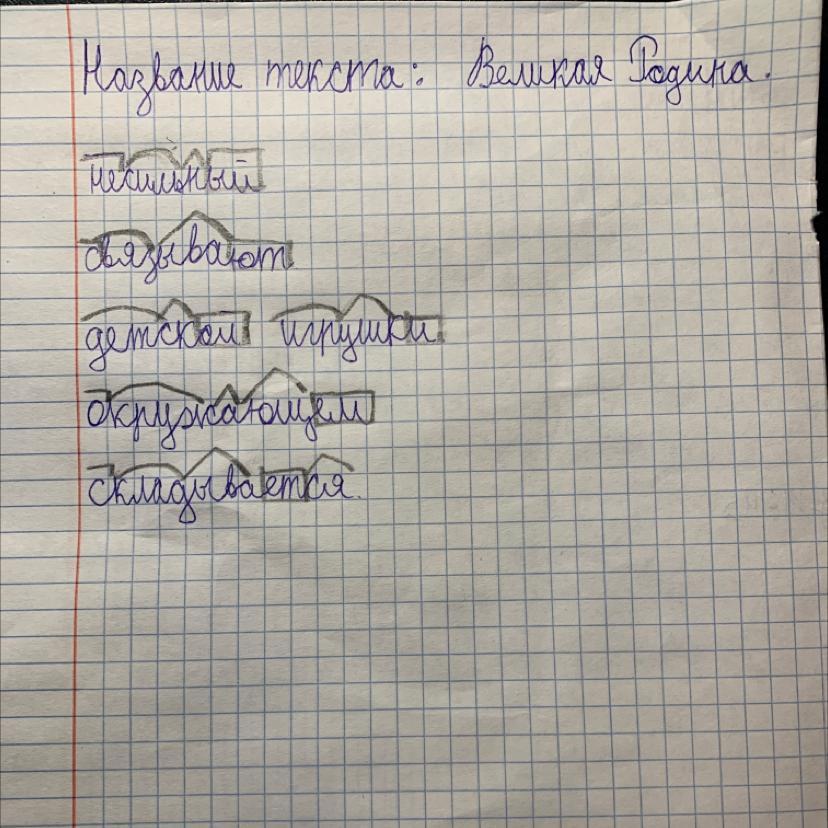 Название текста: Великая Родина.
несильный
связывают
детской игрушки
окружающем
складывается